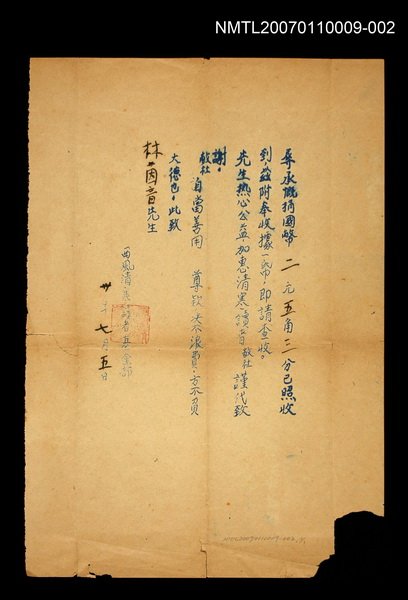 NMTL20070110009-002
尋承慨捐國幣 二元五角三分已照收
到,茲附奉收據一帋,即請查收。
先生热心公益加惠清寒讀者敝社謹代致
謝,敝社
自當善用 尊欵决不浪費,方不負
大德也,此致
林茵音先生
西風清寒讀者基金部
卅年七月五日
NMTL20070110009-002